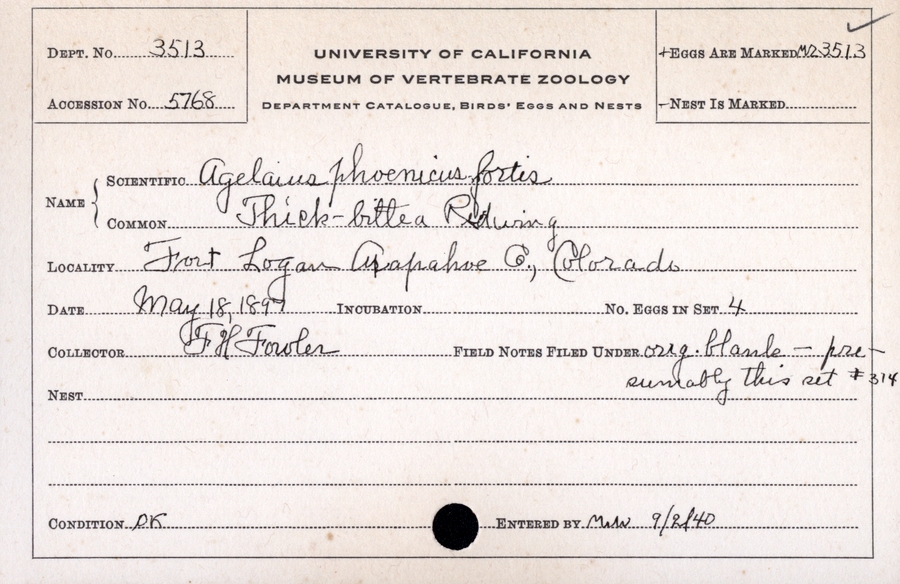 DEPT. No. 3513
ACCESSION No. 5768
UNIVERSITY OF CALIFORNIA
MUSEUM OF VERTEBRATE ZOOLOGY
DEPARTMENT CATALOGUE, BIRDS' EGGS AND NESTS
+EGGS ARE MARKED MVZ3513
-NEST IS MARKED
NAME
SCIENTIFIC Agelaius phoenicus fortis
COMMON Thick-billed Redwing
LOCALITY Fort Logan Arapahoe Co., Colorado
DATE May 18, 1897 INCUBATION No. EGGS IN SET 4
COLLECTOR F H Fowler FIELD NOTES FILED UNDER orig. blank - pre-
sumably this set #314
NEST
CONDITION OK ENTERED BY 9/2/40